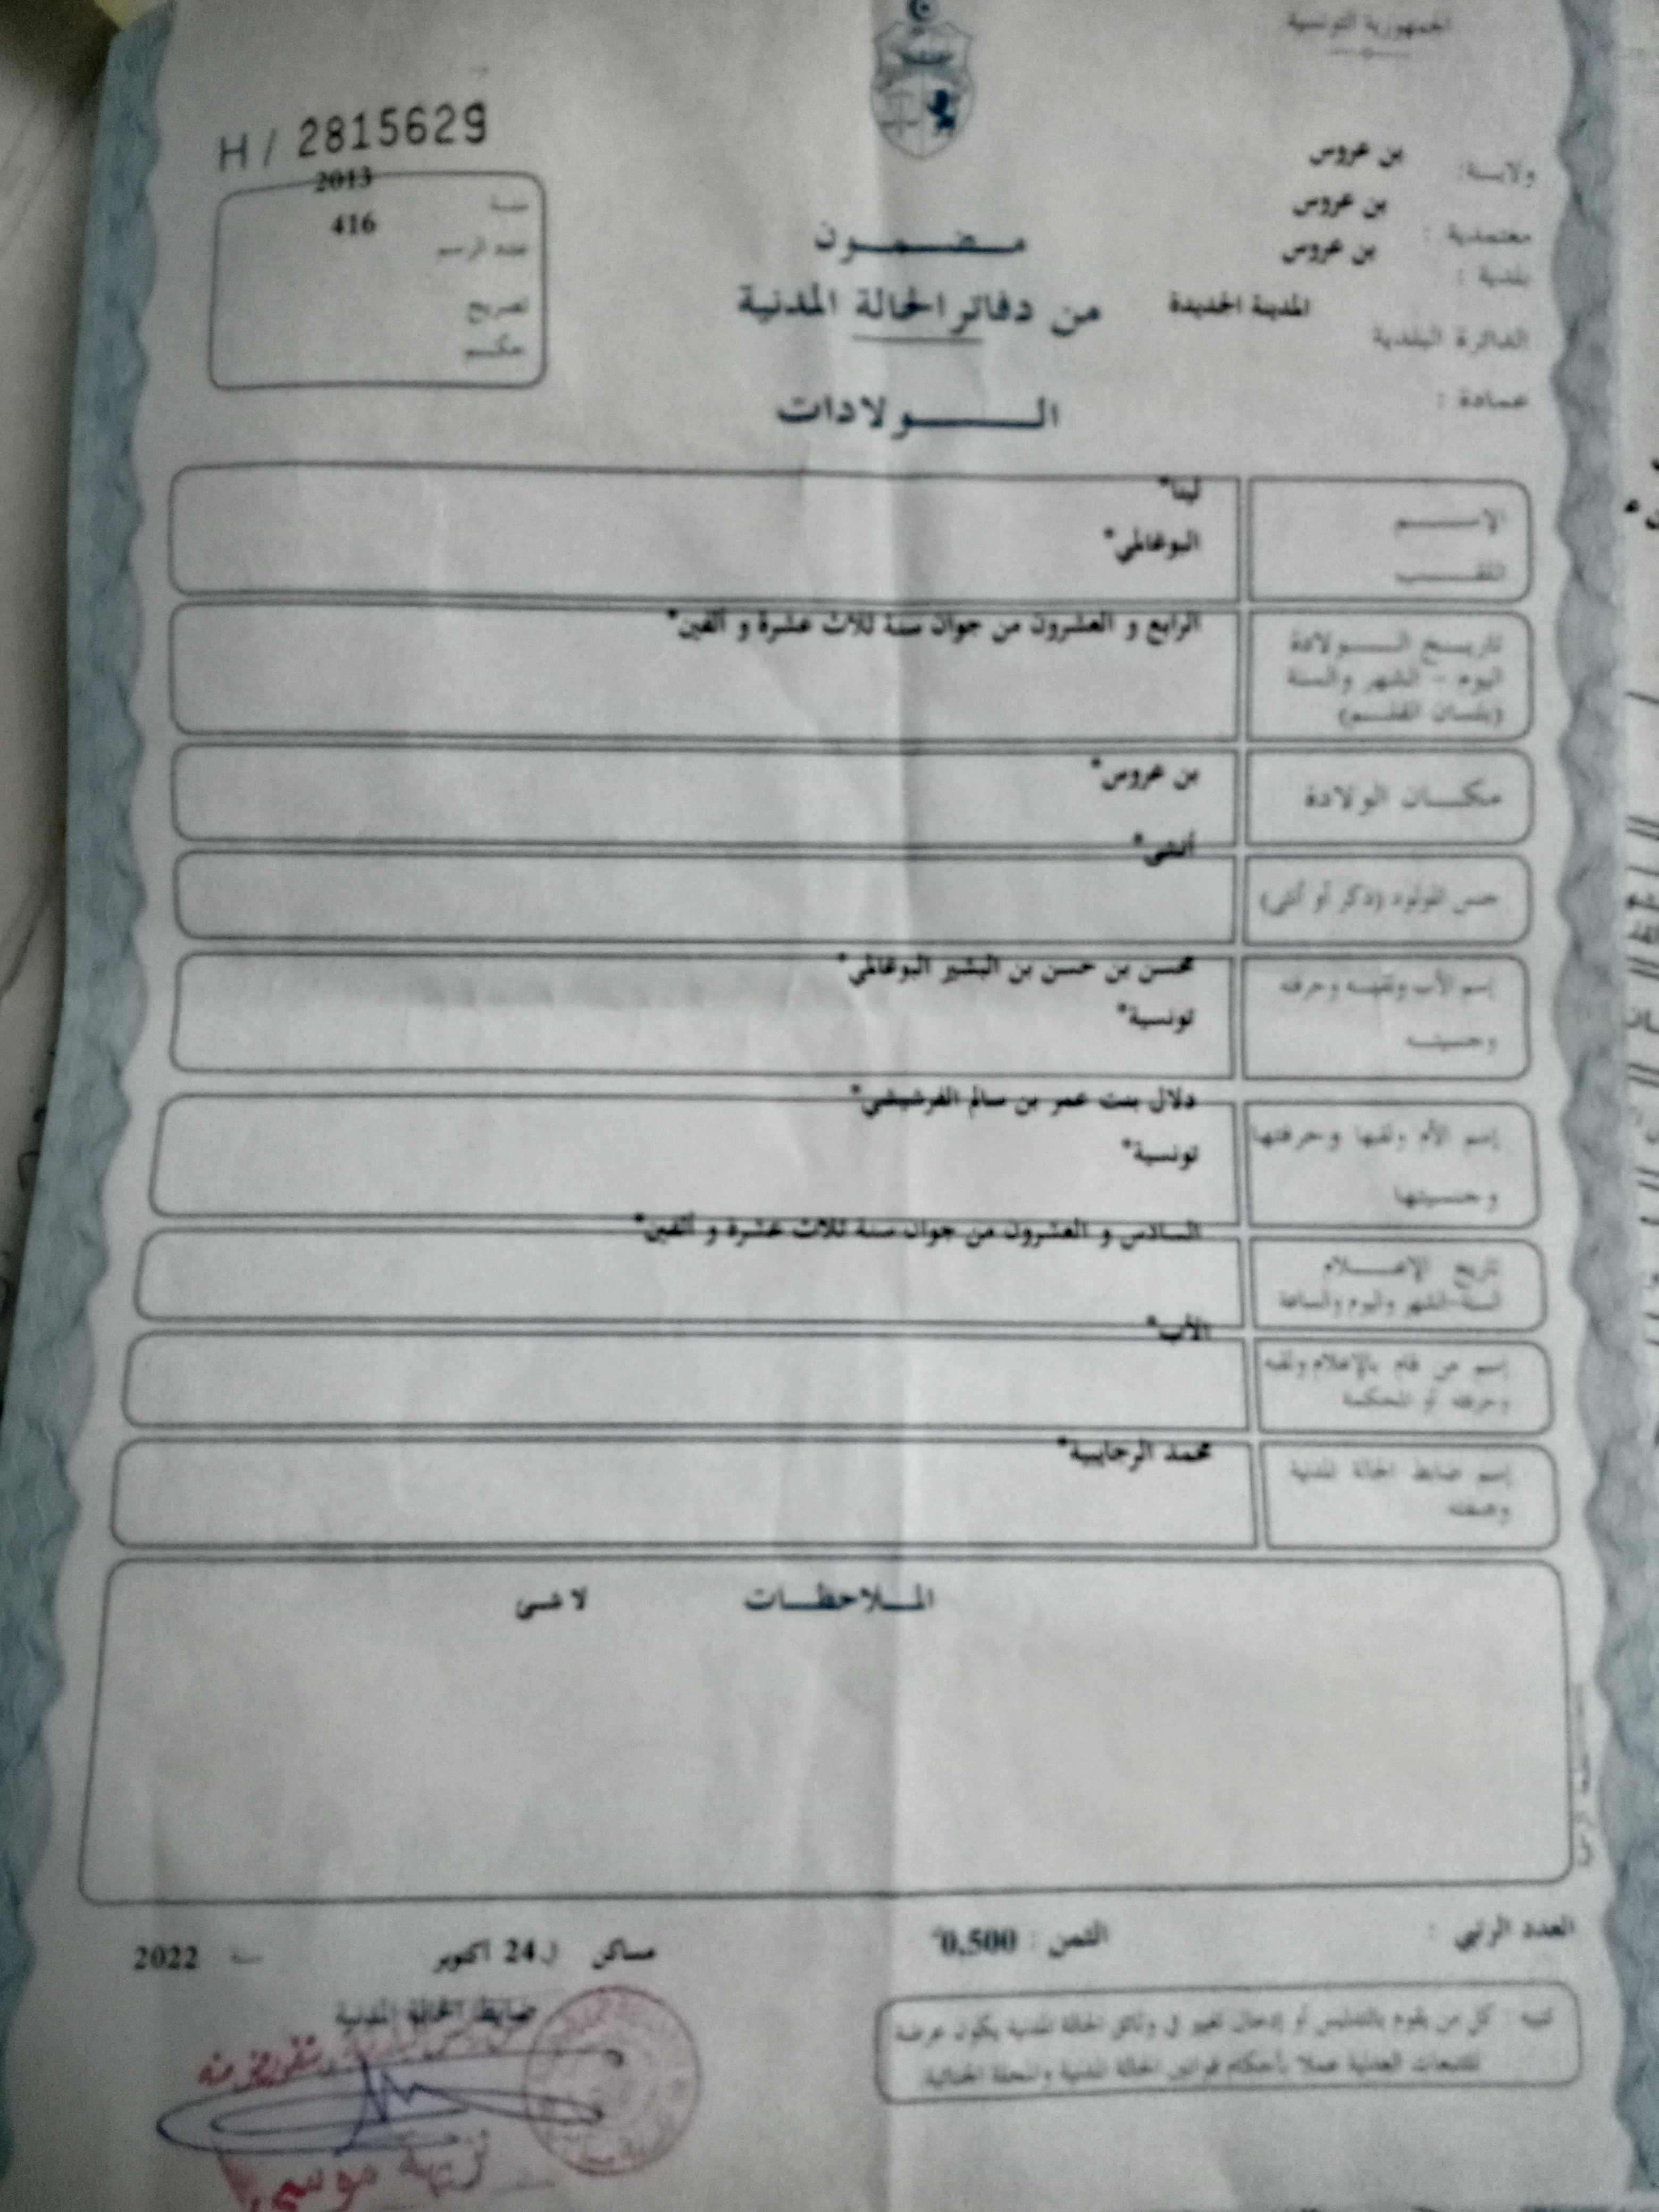 الجمهورية التونسية
H / 2815629
ولايـة: بن عروس
معتمدية : بن عروس
بلدية : بن عروس
الدائرة البلدية المدينة الجديدة
عمادة :
سنة 2013
عدد الرسم 416
تصريح
حكم
مضمون
من دفاتر الحالة المدنية
الولادات
الإسم لينا*
اللقب البوغالمي*
تاريخ الولادة الرابع و العشرون من جوان سنة ثلاث عشرة و ألفين*
اليوم - الشهر والسنة
(بلسان القلم)
مكان الولادة بن عروس*
جنس المولود (ذكر أو أنثى) أنثى*
إسم الأب ولقبه وحرفته محسن بن حسن بن البشير البوغالمي*
وجنسيته تونسية*
إسم الأم ولقبها وحرفتها دلال بنت عمر بن سالم الفرشيشي*
وجنسيتها تونسية*
تاريخ الإعلام السادس و العشرون من جوان سنة ثلاث عشرة و ألفين*
السنة-الشهر واليوم والساعة
إسم من قام بالإعلام ولقبه الأب*
وحرفته أو المحكمة
إسم ضابط الحالة المدنية محمد الرجايبية*
وصفته
الملاحظات لا شئ
العدد الرتبي :
الثمن : 0,500
مساكن في 24 أكتوبر سنة 2022
ضابط الحالة المدنية
تنبيه : كل من يقوم بالتدليس أو إدخال تغيير في وثائق الحالة المدنية يكون عرضة
للتتبعات العدلية عملا بأحكام قوانين الحالة المدنية والمجلة الجنائية.